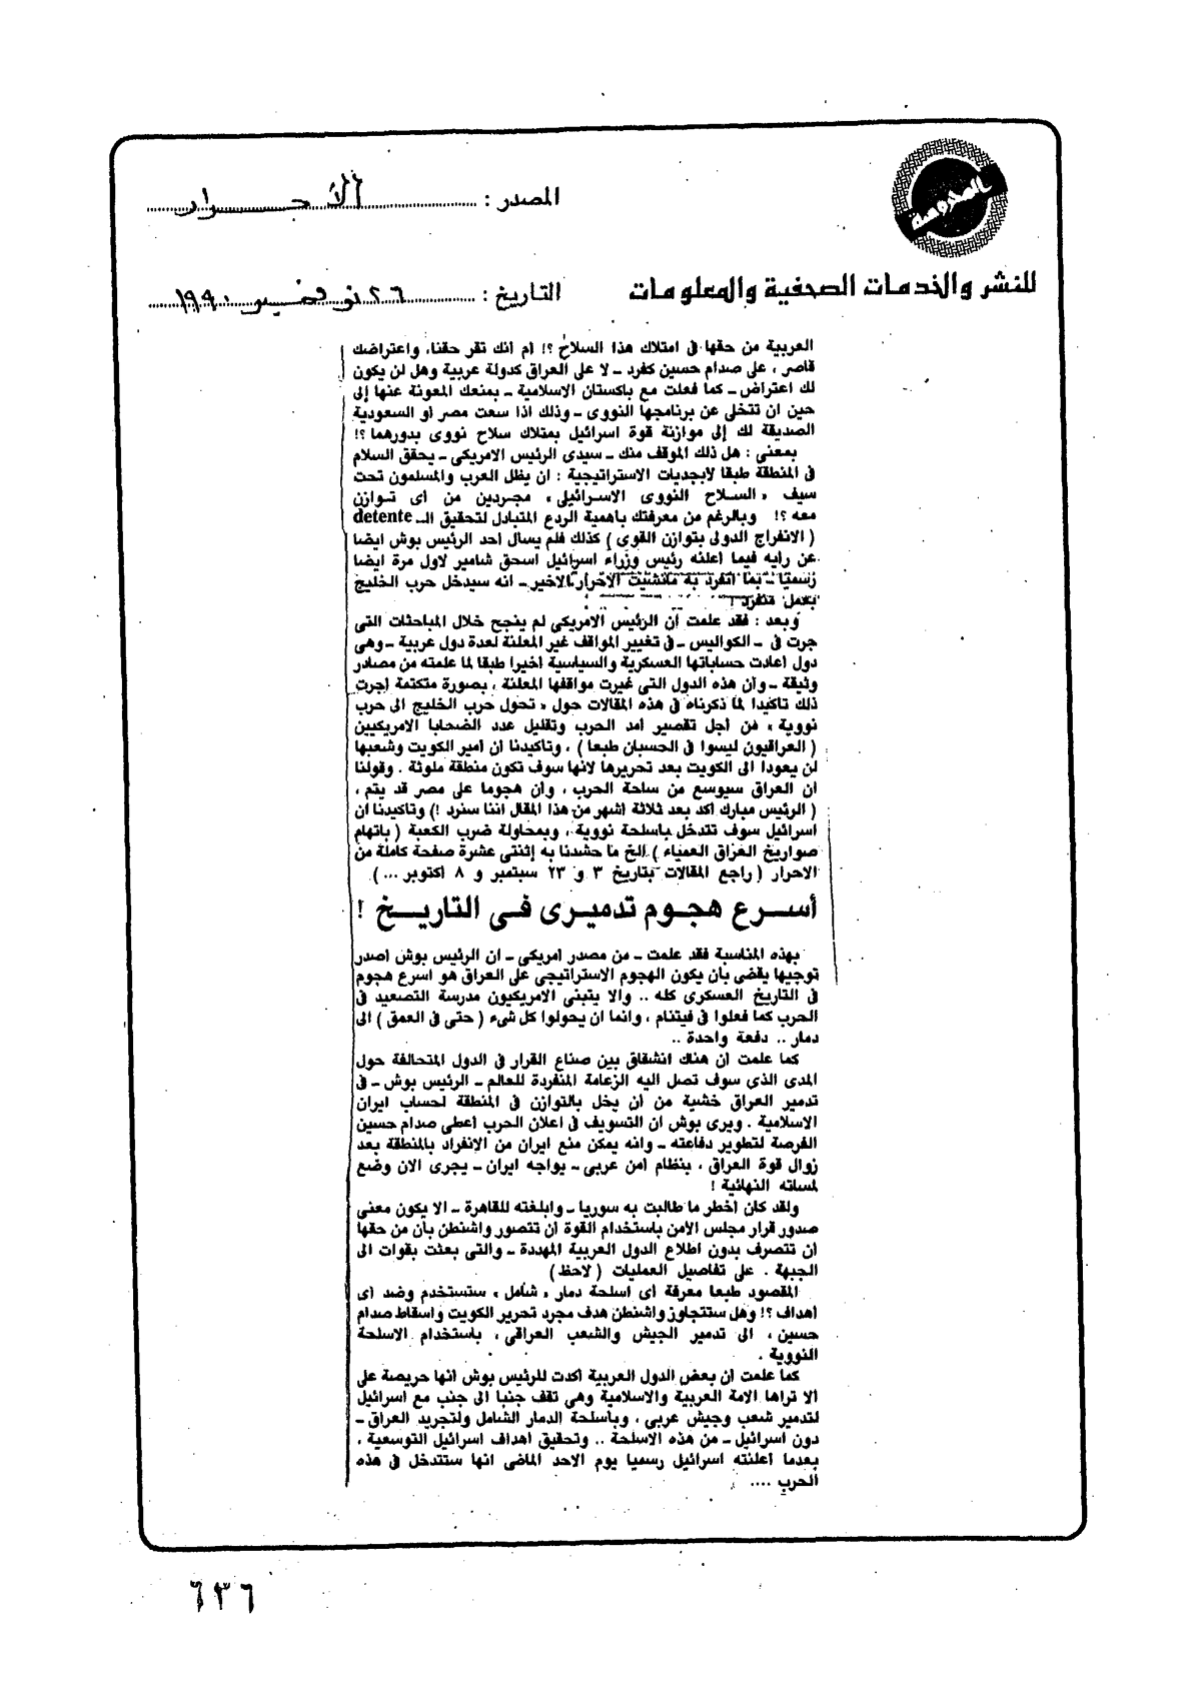 المصدر : الأحرار
للنشر والخدمات الصحفية والمعلومات
التاريخ : ٢٦ نوفمبر ١٩٩٠
العربية من حقها فى امتلاك هذا السلاح ؟! أم أنك تقر حقنا، واعتراضك
قاصر ، على صدام حسين كفرد ـ لا على العراق كدولة عربية وهل لن يكون
لك اعتراض ـ كما فعلت مع باكستان الاسلامية ـ بمنعك المعونة عنها إلى
حين ان تتخلى عن برنامجها النووى ـ وذلك اذا سعت مصر أو السعودية
الصديقة لك إلى موازنة قوة اسرائيل بمتلاك سلاح نووى بدورهما ؟!
بمعنى : هل ذلك الموقف منك ـ سيدى الرئيس الامريكى ـ يحقق السلام
فى المنطقة طبقا لابجديات الاستراتيجية : ان يظل العرب والمسلمون تحت
سيف « السلاح النووى الاسرائيلى » مجردين من أى توازن
معه ؟! وبالرغم من معرفتك باهمية الردع المتبادل لتحقيق الـ detente
( الانفراج الدولى بتوازن القوى ) كذلك فلم يسال أحد الرئيس بوش ايضا
عن رأيه فيما أعلنه رئيس وزراء اسرائيل اسحق شامير لاول مرة ايضا
رسميا ـ بما انفرد به مانشيت الاحرار الاخير ـ انه سيدخل حرب الخليج
بعمل منفرد !
وبعد : فقد علمت أن الرئيس الامريكى لم ينجح خلال المباحثات التى
جرت فى ـ الكواليس ـ فى تغيير المواقف غير المعلنة لعدة دول عربية ـ وهى
دول أعادت حساباتها العسكرية والسياسية اخيرا طبقا لما علمته من مصادر
وثيقة ـ وأن هذه الدول التى غيرت مواقفها المعلنة ، بصورة متكتمة أجرت
ذلك تاكيدا لما ذكرناه فى هذه المقالات حول « تحول حرب الخليج الى حرب
نووية » من أجل تقصير أمد الحرب وتقليل عدد الضحايا الامريكيين
( العراقيون ليسوا فى الحسبان طبعا ) ، وتاكيدنا ان أمير الكويت وشعبها
لن يعودا الى الكويت بعد تحريرها لانها سوف تكون منطقة ملوثة . وقولنا
ان العراق سيوسع من ساحة الحرب ، وأن هجوما على مصر قد يتم ،
( الرئيس مبارك أكد بعد ثلاثة أشهر من هذا المقال اننا سنرد !) وتاكيدنا ان
اسرائيل سوف تتدخل باسلحة نووية ، وبمحاولة ضرب الكعبة ( باتهام
صواريخ العراق العمياء ) الخ ما حشدنا به إثنتى عشرة صفحة كاملة من
الاحرار ( راجع المقالات بتاريخ ٣ و ٢٣ سبتمبر و ٨ اكتوبر ... )
أسـرع هجـوم تدميـرى فـى التاريـخ !
بهذه المناسبة فقد علمت ـ من مصدر أمريكى ـ ان الرئيس بوش أصدر
توجيها يقضى بأن يكون الهجوم الاستراتيجى على العراق هو أسرع هجوم
فى التاريخ العسكرى كله .. والا يتبنى الامريكيون مدرسة التصعيد فى
الحرب كما فعلوا فى فيتنام ، وانما ان يحولوا كل شىء ( حتى فى العمق ) الى
دمار .. دفعة واحدة ..
كما علمت ان هناك انشقاق بين صناع القرار فى الدول المتحالفة حول
المدى الذى سوف تصل اليه الزعامة المنفردة للعالم ـ الرئيس بوش ـ فى
تدمير العراق خشية من أن يخل بالتوازن فى المنطقة لحساب ايران
الاسلامية . ويرى بوش ان التسويف فى اعلان الحرب أعطى صدام حسين
الفرصة لتطوير دفاعته ـ وانه يمكن منع ايران من الإنفراد بالمنطقة بعد
زوال قوة العراق ، بنظام أمن عربى ـ يواجه ايران ـ يجرى الان وضع
لمساته النهائية !
ولقد كان أخطر ما طالبت به سوريا ـ وابلغته للقاهرة ـ الا يكون معنى
صدور قرار مجلس الامن باستخدام القوة أن تتصور واشنطن بأن من حقها
ان تتصرف بدون اطلاع الدول العربية المهددة ـ والتى بعثت بقوات الى
الجبهة . على تفاصيل العمليات ( لاحظ )
المقصود طبعا معرفة أى اسلحة دمار « شامل » ستستخدم وضد أى
اهداف ؟! وهل ستتجاوز واشنطن هدف مجرد تحرير الكويت واسقاط صدام
حسين ، الى تدمير الجيش والشعب العراقى ، باستخدام الاسلحة
النووية .
كما علمت ان بعض الدول العربية أكدت للرئيس بوش انها حريصة على
الا تراها الامة العربية والاسلامية وهى تقف جنبا الى جنب مع اسرائيل
لتدمير شعب وجيش عربى ، وبأسلحة الدمار الشامل ولتجريد العراق ـ
دون اسرائيل ـ من هذه الاسلحة .. وتحقيق اهداف اسرائيل التوسعية ،
بعدما أعلنته اسرائيل رسميا يوم الاحد الماضى انها ستتدخل فى هذه
الحرب ....
٦٣٦